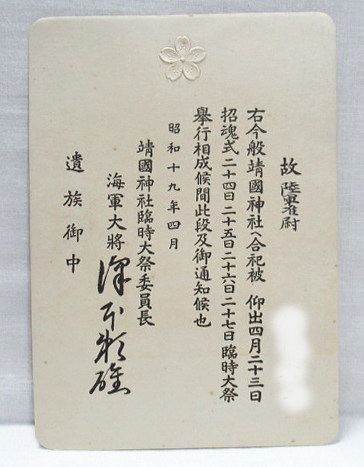 故 陸軍准尉
右今般靖國神社ヘ合祀被 仰出四月二十三日
招魂式二十四日二十五日二十六日二十七日臨時大祭
舉行相成候間此段及御通知候也
昭和十九年四月
靖國神社臨時大祭委員長
海軍大將 澤本頼雄
遺族御中